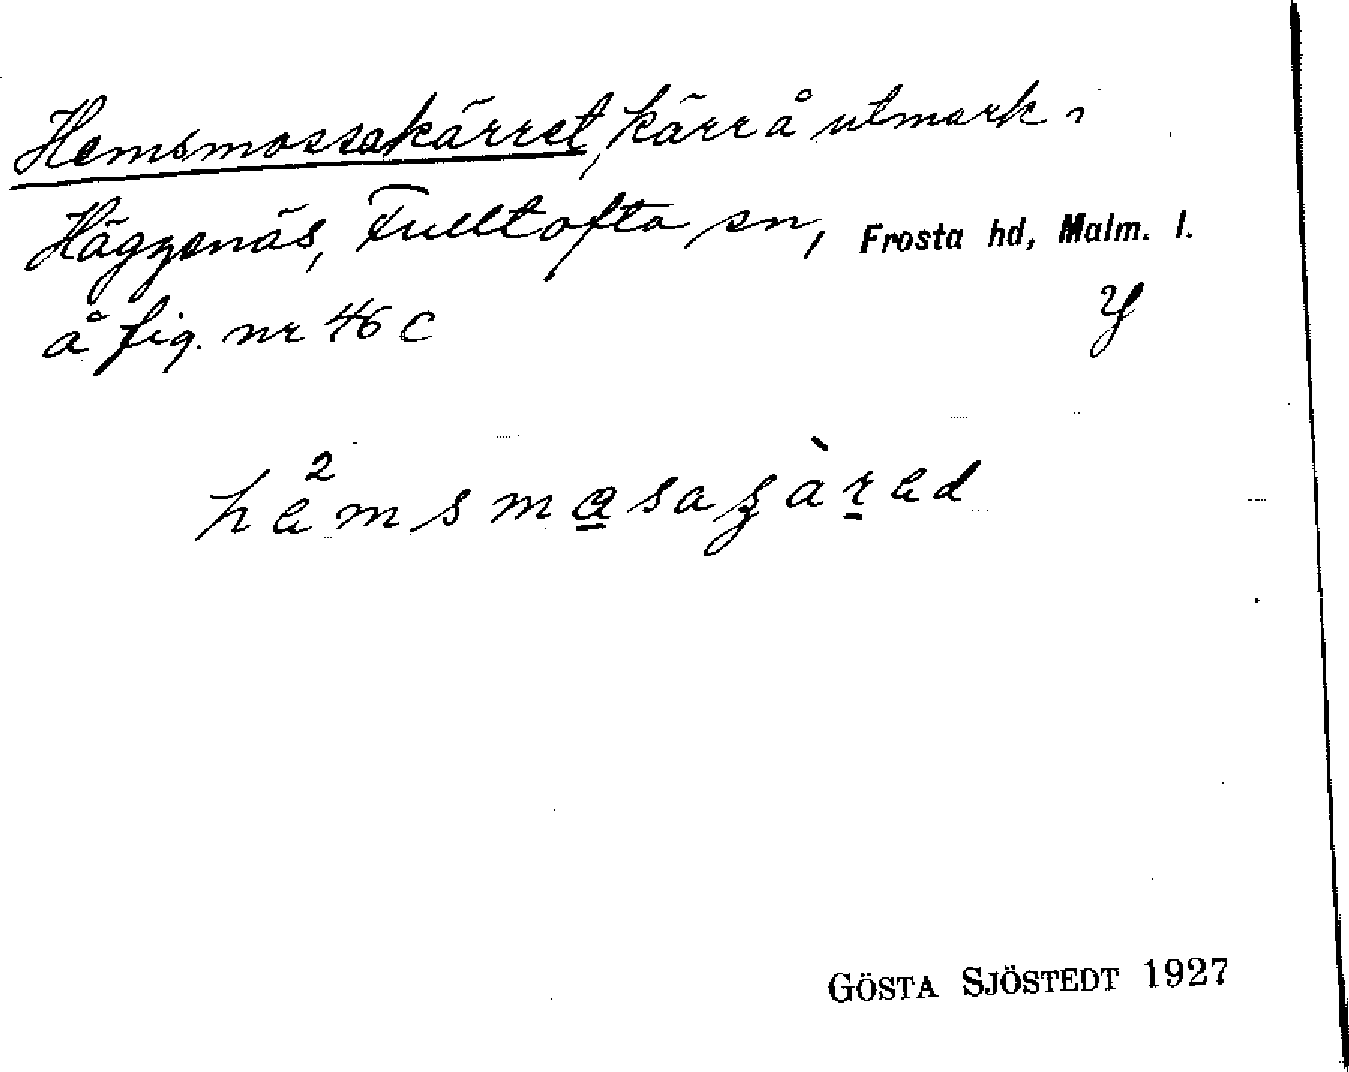 Hemsmossakärret, kärr å utmark,
Häggenäs, Fulltofta sn, Frosta hd, Malm. l.
å fig. nr 46 c
GÖSTA SJÖSTEDT 1927